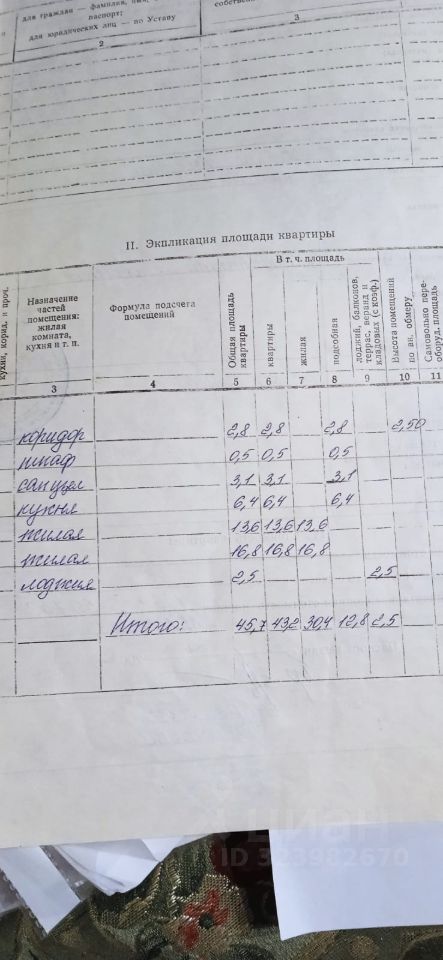 для граждан — фамилия,
паспорт;
для юридических лиц — по Уставу
2
3
II. Экпликация площади квартиры
кухни, корид, и проч.
Назначение
частей
помещения:
жилая
комната,
кухня и т. п.
Формула подсчета
помещений
Общая площадь
квартиры
В т. ч. площадь
квартиры
жилая
подсобная
лоджий, балконов,
террас, веранд и
кладовых (с коэф.)
Высота помещений
по вн. обмеру
Самовольно пере-
оборуд. площадь
3 4 5 6 7 8 9 10 11
коридор 2,8 2,8 2,8 2,50
шкаф 0,5 0,5 0,5
санузел 3,1 3,1 3,1
кухня 6,4 6,4 6,4
жилая 13,6 13,6 13,6
жилая 16,8 16,8 16,8
лоджия 2,5 2,5
Итого: 45,7 43,2 30,4 12,8 2,5
циан
ID 323982670